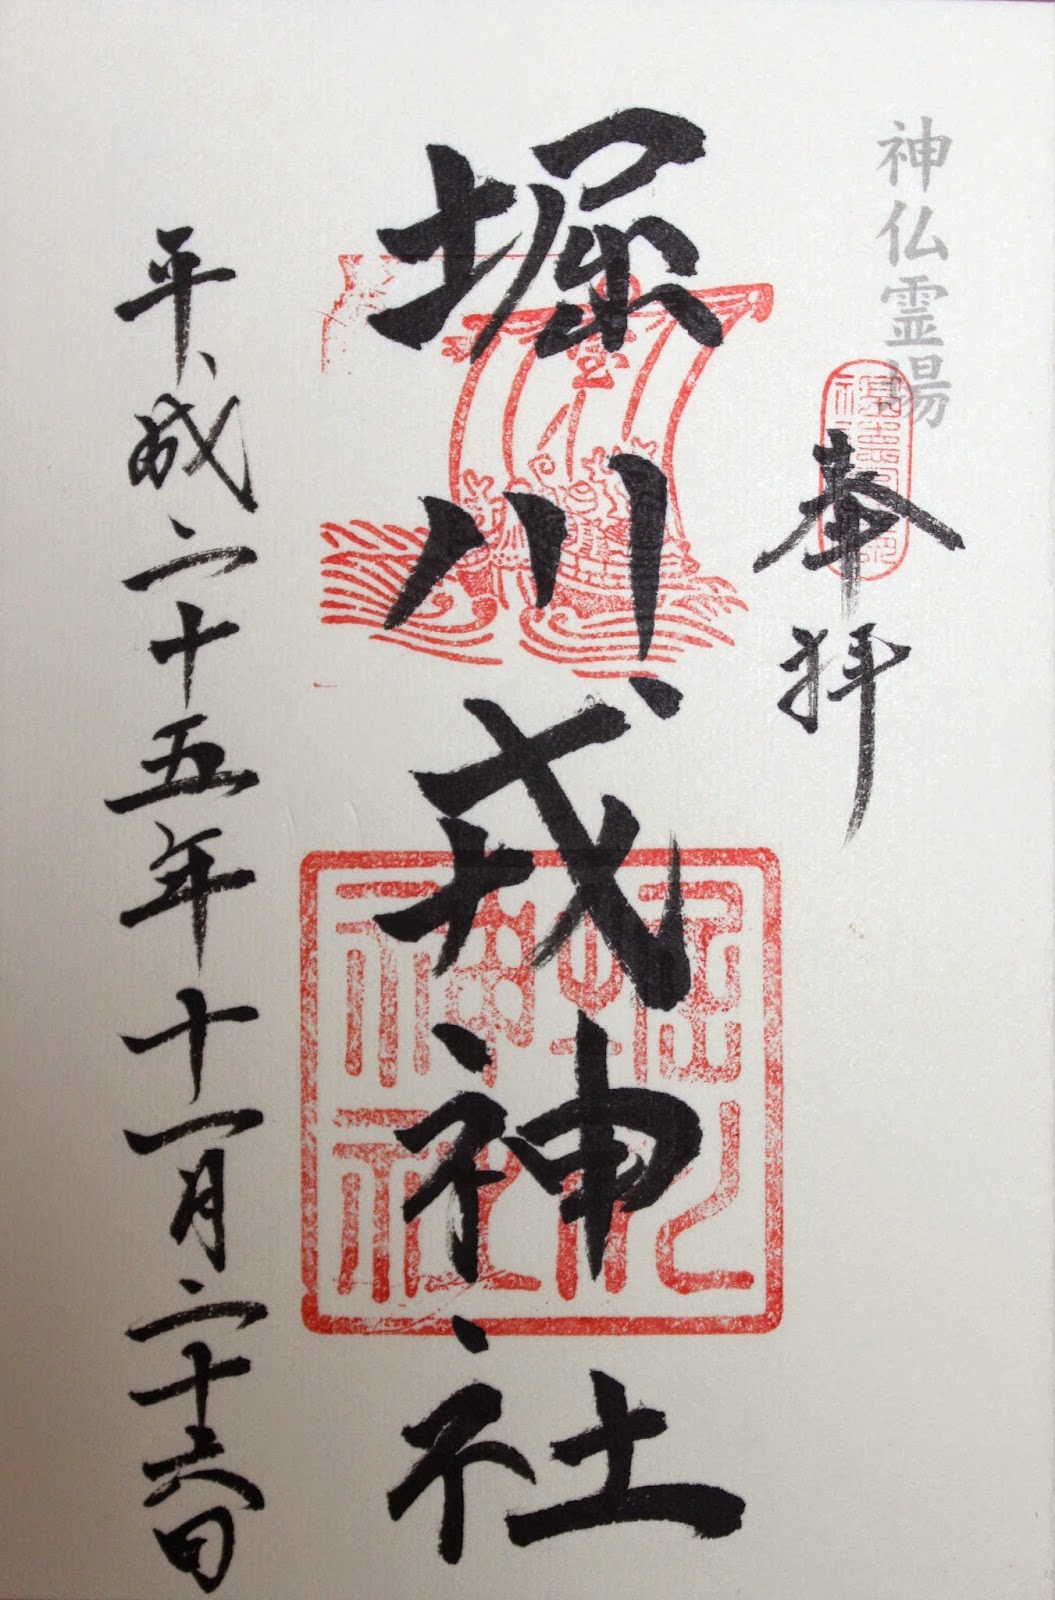 神仏霊場
奉拝
堀川戎神社
平成二十五年十一月二十六日